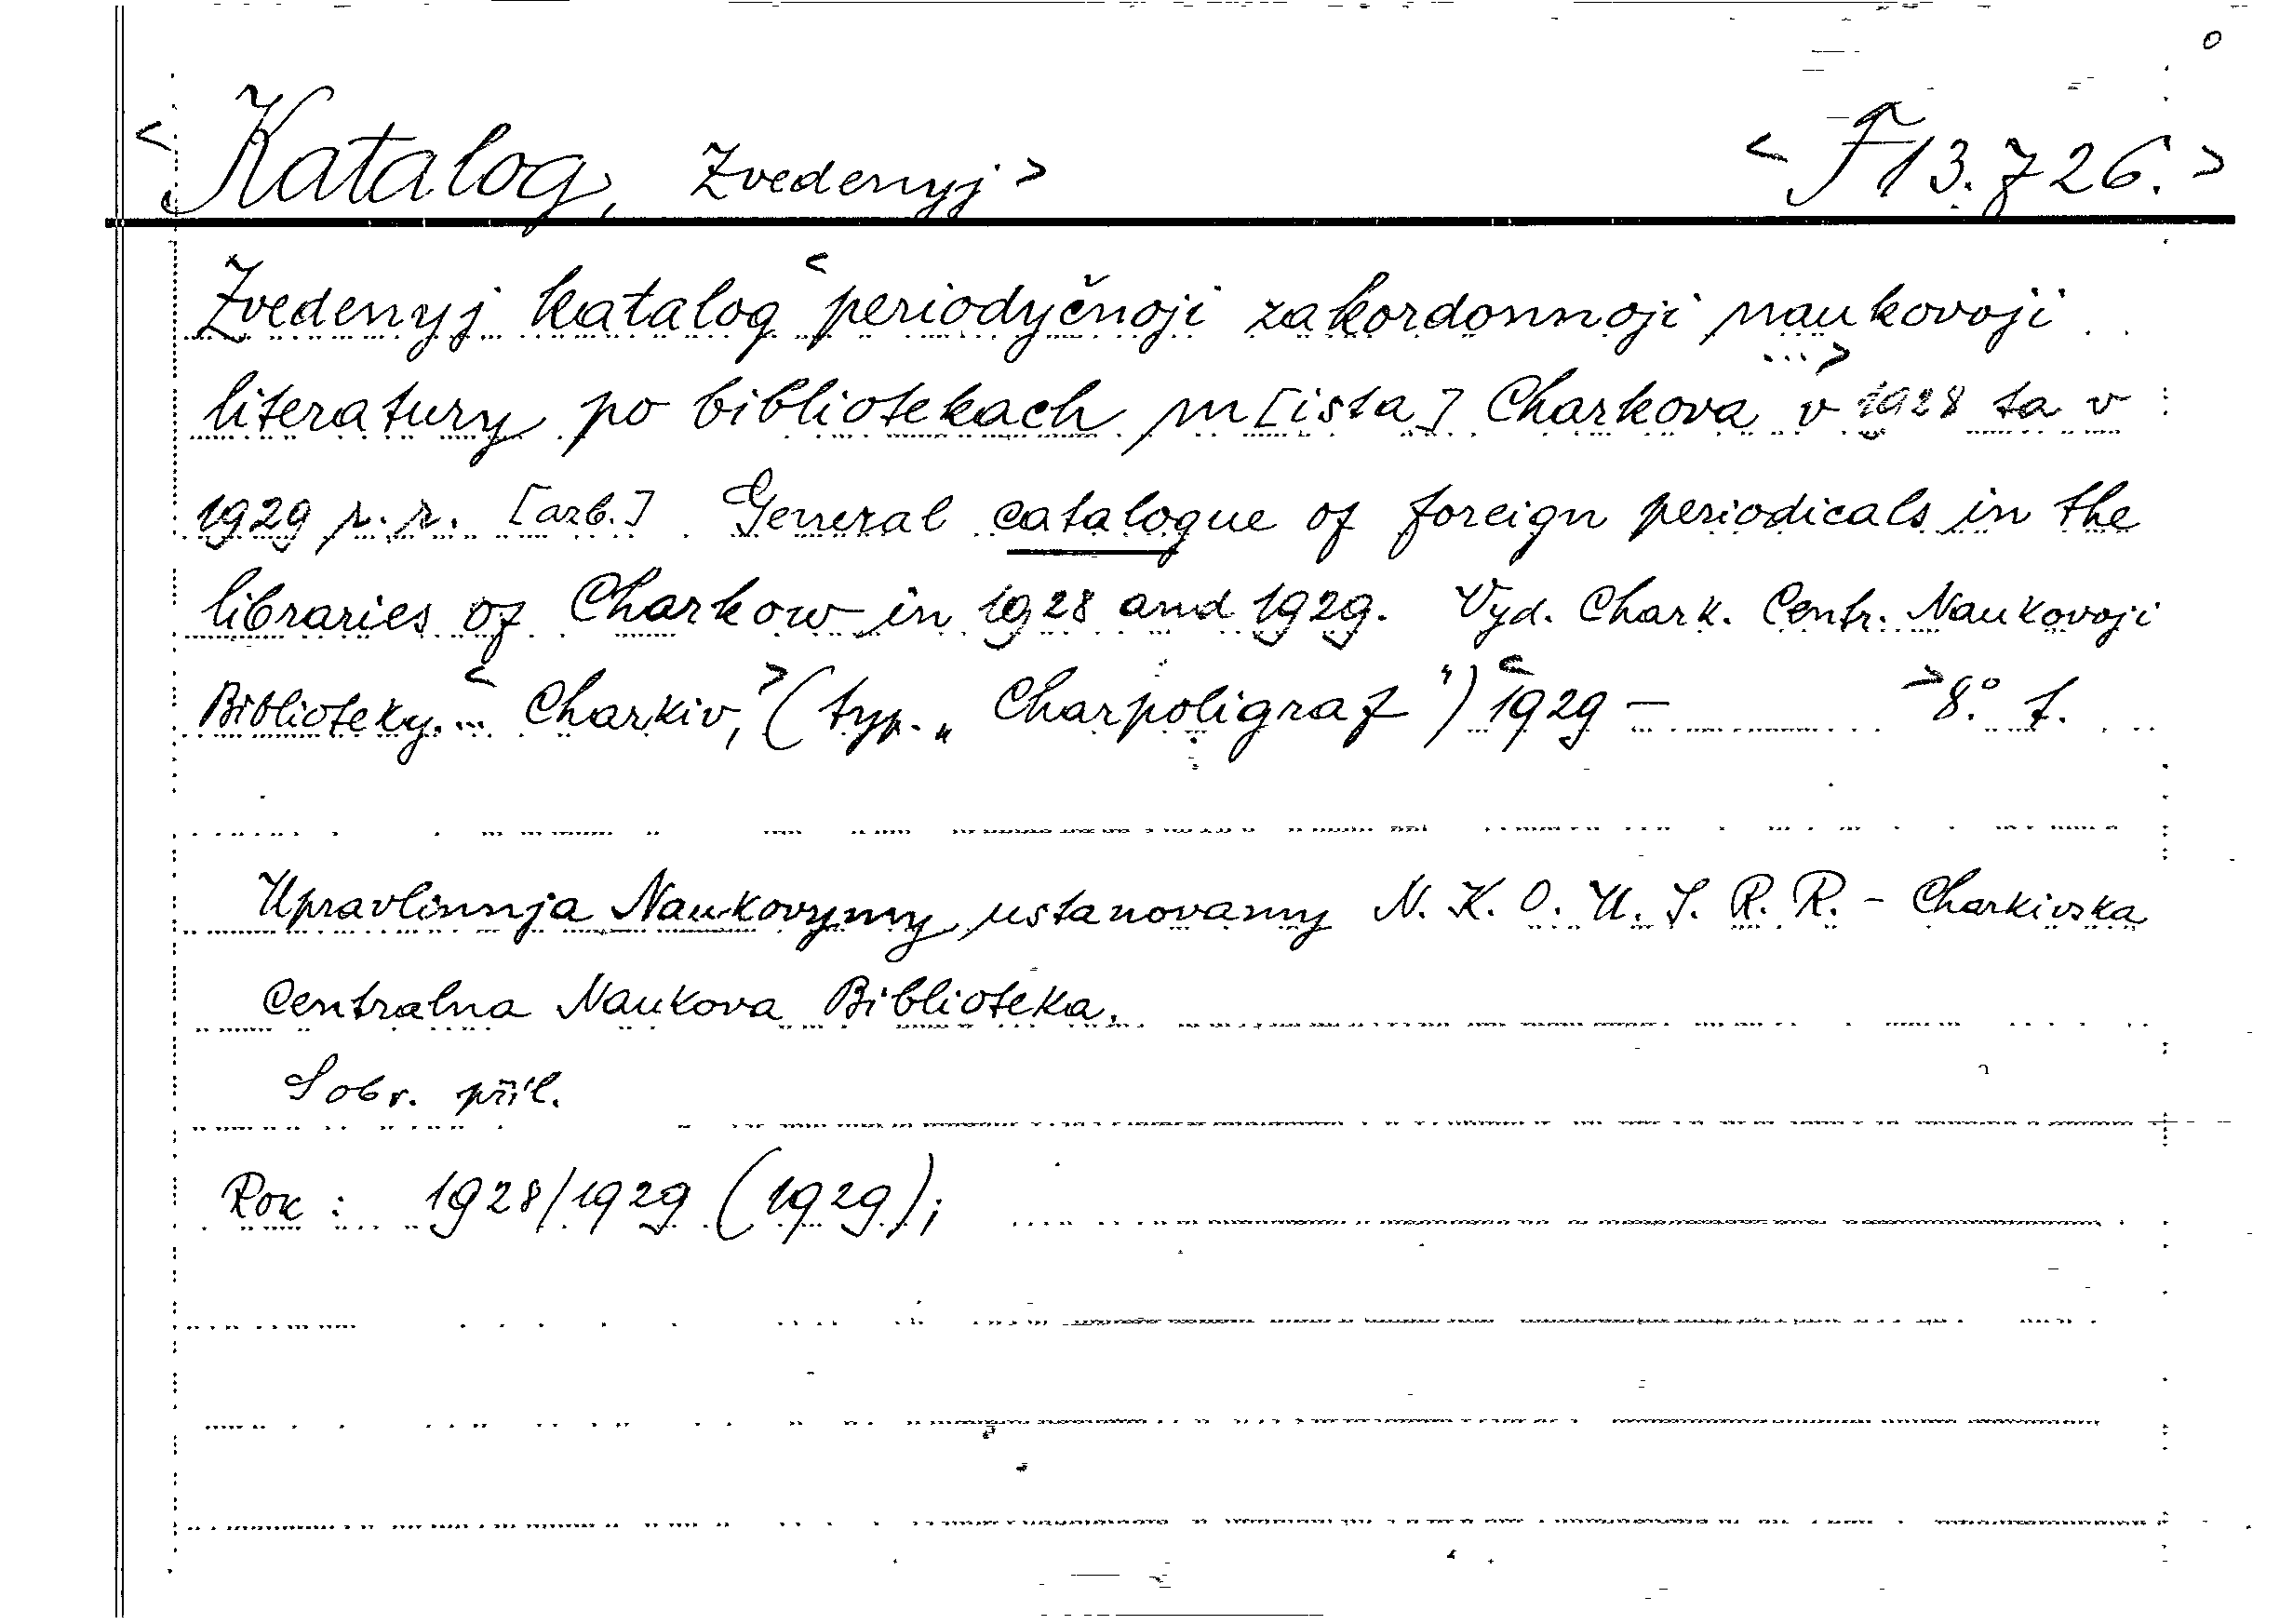 < Katalog, Zvedenyj > < F 13.726. >
Zvedenyj katalog < periodyčnoji zakordonnoji naukovoji
literatury po bibliotekach m[ista] Charkova ...> v 1928 ta v
1929 r.r. [azb.] General catalogue of foreign periodicals in the
libraries of Charkow in 1928 and 1929. Vyd. Chark. Centr. Naukovoji
Biblioteky. ... < Charkiv, > (typ. „Charpoligraf") < 1929 — > 8.° f.
Upravlinnja Naukovymy ustanovamy N. K. O. U. S. R. R. - Charkivska
Centralna Naukova Biblioteka.
S obr. příl.
Rok : 1928/1929 (1929);